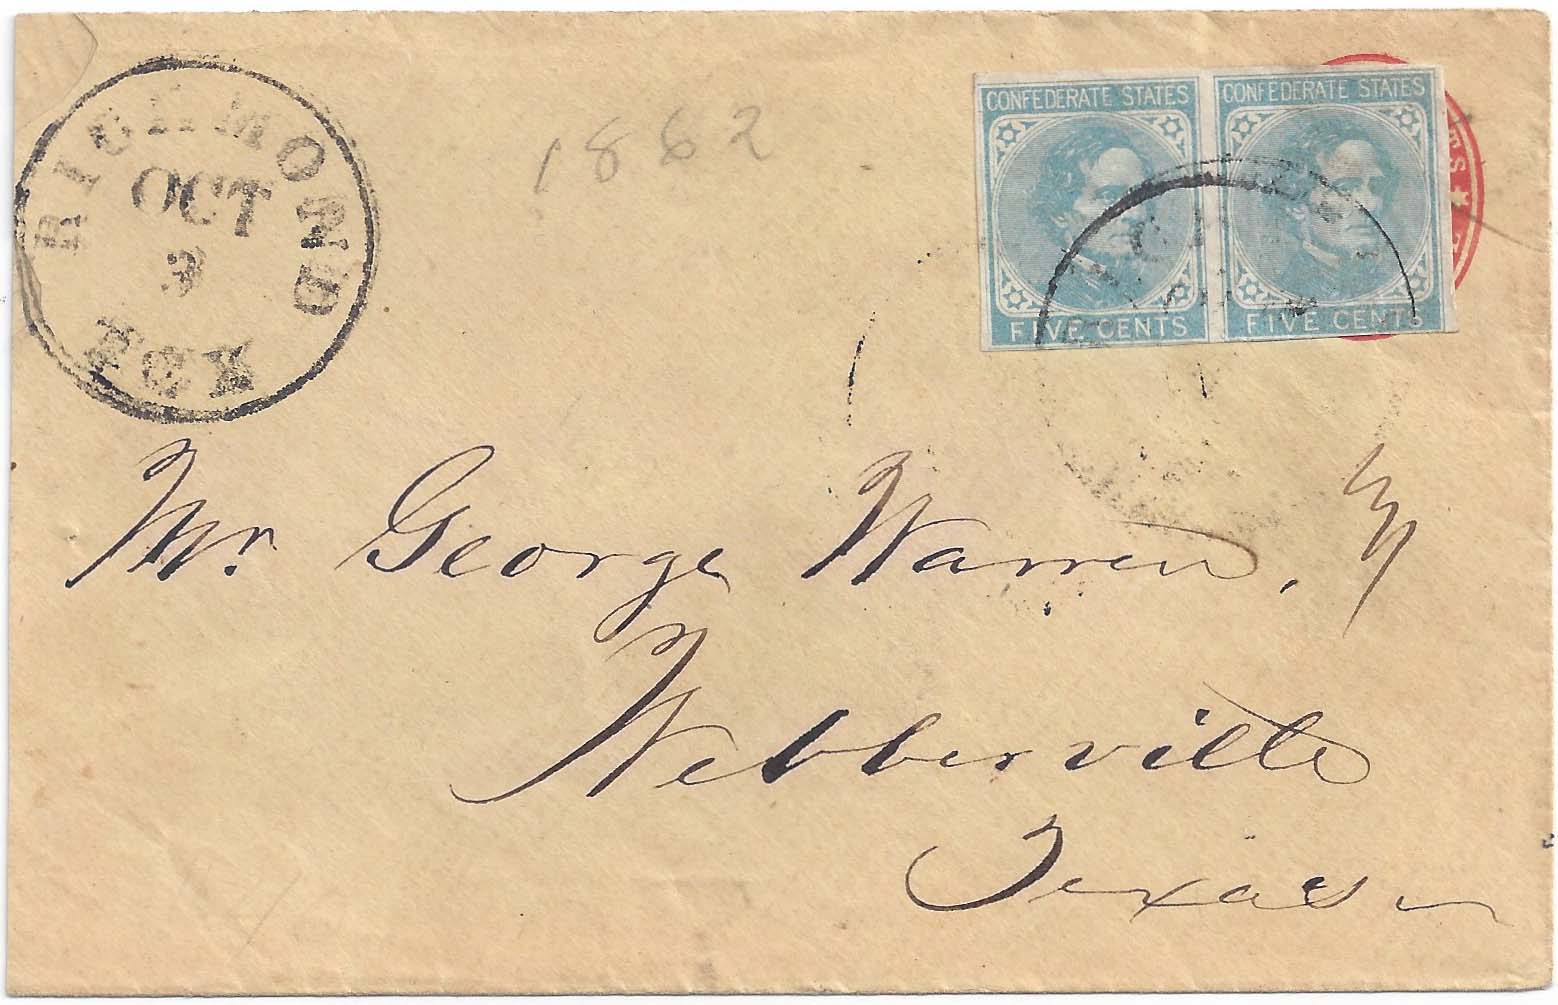 RICHMOND
OCT
3
TEX
1862
CONFEDERATE STATES
FIVE CENTS
CONFEDERATE STATES
FIVE CENTS
Mr. George Warren,
Webberville
Texas